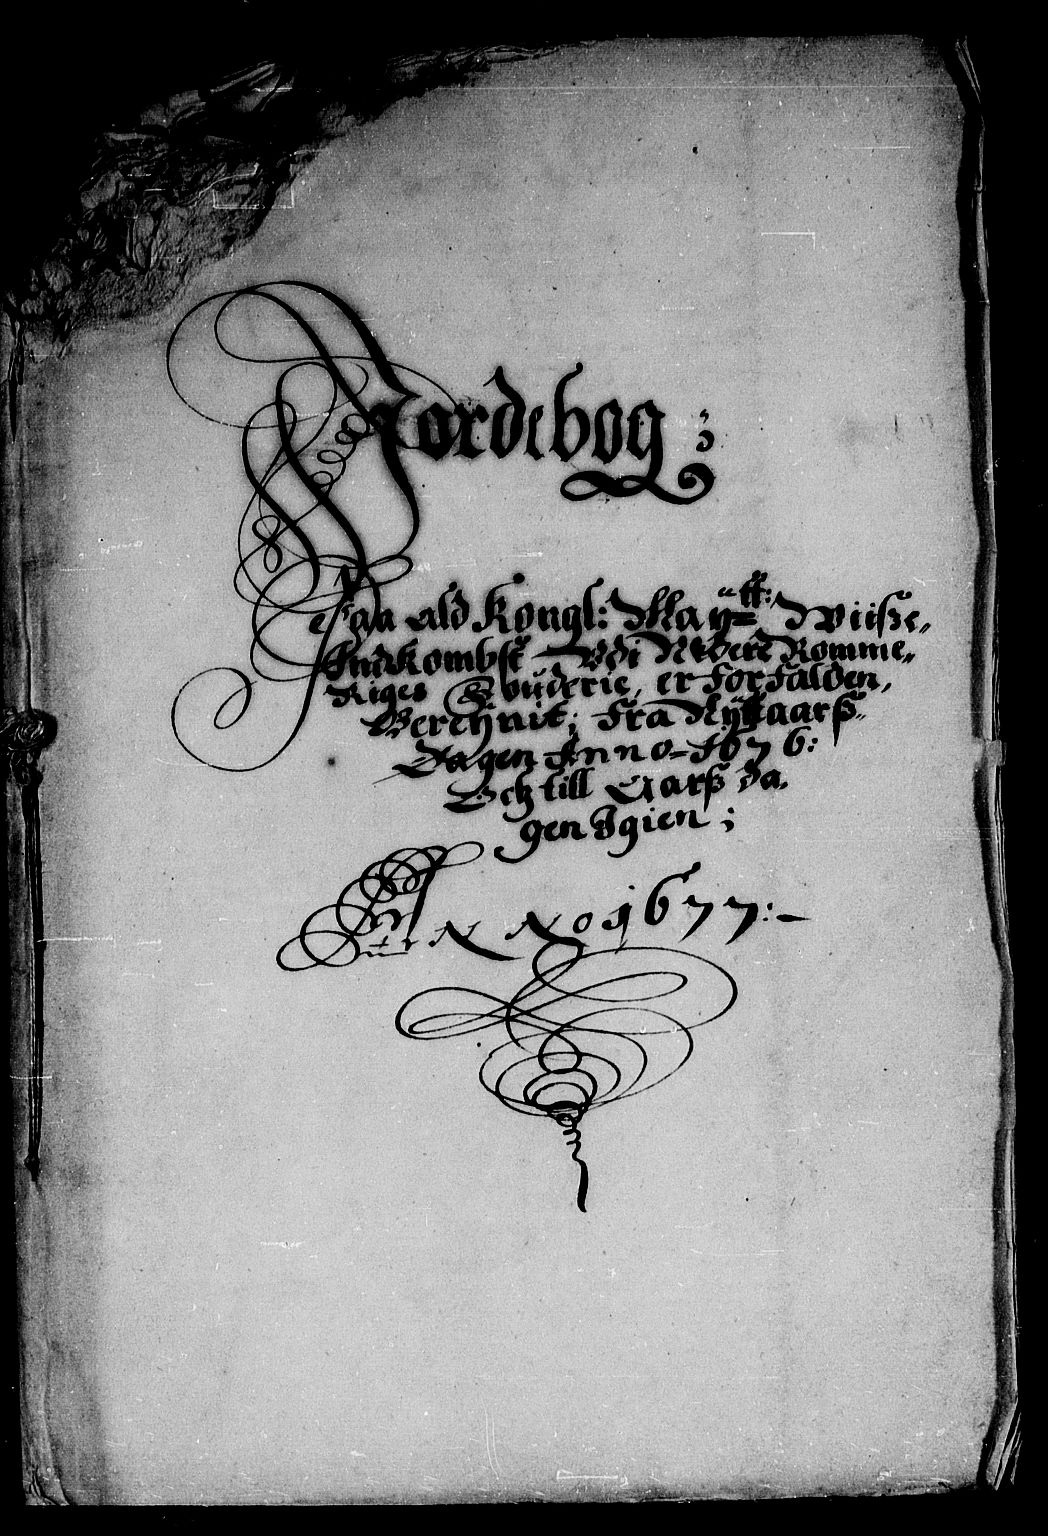 Jordebog;
Paa ald Kongl: May:tt: Wiisse„
Indkombst Udi Nedere Romme„
Riges Fougderie, er forfalden,
Berejnit; fra Nÿtaarß„
Dagen Anno 1676:
Och till Aarß da„
gen Igien;
Anno 1677: